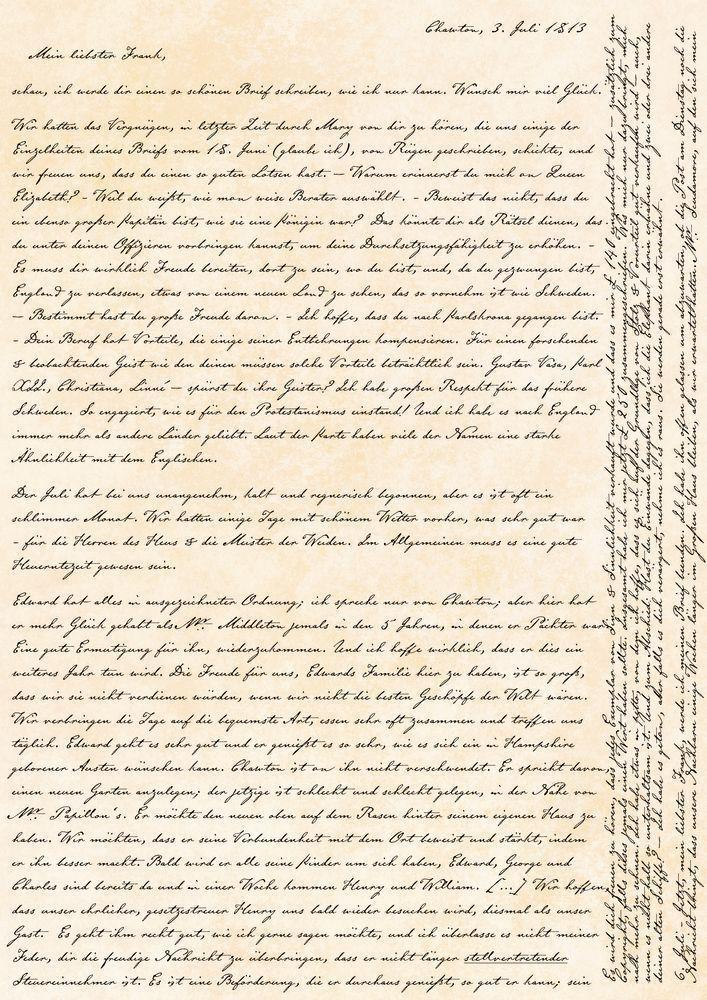 Chawton, 3. Juli 1813
Mein liebster Frank,
schau, ich werde dir einen so schönen Brief schreiben, wie ich nur kann. Wünsch mir viel Glück.
Wir hatten das Vergnügen, in letzter Zeit durch Mary von dir zu hören, die uns einige der
Einzelheiten deines Briefs vom 18. Juni (glaube ich), von Rügen geschrieben, schickte, und
wir freuen uns, dass du einen so guten Lotsen hast. — Warum erinnerst du mich an Queen
Elizabeth? - Weil du weißt, wie man weise Berater auswählt. - Beweist das nicht, dass du
ein ebenso großer Kapitän bist, wie sie eine Königin war? Das könnte dir als Rätsel dienen, das
du unter deinen Offizieren vorbringen kannst, um deine Durchsetzungsfähigkeit zu erhöhen. -
Es muss dir wirklich Freude bereiten, dort zu sein, wo du bist, und, da du gezwungen bist,
England zu verlassen, etwas von einem neuen Land zu sehen, das so vornehm ist wie Schweden.
— Bestimmt hast du große Freude daran. - Ich hoffe, dass du nach Karlskrona gegangen bist.
- Dein Beruf hat Vorteile, die einige seiner Entbehrungen kompensieren. Für einen forschenden
& beobachtenden Geist wie den deinen müssen solche Vorteile beträchtlich sein. Gustav Vasa, Karl
XII., Christiana, Linné — spürst du ihre Geister? Ich habe großen Respekt für das frühere
Schweden. So engagiert, wie es für den Protestanismus einstand! Und ich habe es nach England
immer mehr als andere Länder geliebt. Laut der Karte haben viele der Namen eine starke
Ähnlichkeit mit dem Englischen.
Der Juli hat bei uns unangenehm, kalt und regnerisch begonnen, aber es ist oft ein
schlimmer Monat. Wir hatten einige Tage mit schönem Wetter vorher, was sehr gut war
- für die Herren des Heus & die Meister der Weiden. Im Allgemeinen muss es eine gute
Heuerntezeit gewesen sein.
Edward hat alles in ausgezeichneter Ordnung; ich spreche nur von Chawton; aber hier hat
er mehr Glück gehabt als Mr. Middleton jemals in den 5 Jahren, in denen er Pächter war.
Eine gute Ermutigung für ihn, wiederzukommen. Und ich hoffe wirklich, dass er dies ein
weiteres Jahr tun wird. Die Freude für uns, Edwards Familie hier zu haben, ist so groß,
dass wir sie nicht verdienen würden, wenn wir nicht die besten Geschöpfe der Welt wären.
Wir verbringen die Tage auf die bequemste Art, essen sehr oft zusammen und treffen uns
täglich. Edward geht es sehr gut und er genießt es so sehr, wie es sich ein in Hampshire
geborener Austen wünschen kann. Chawton ist an ihn nicht verschwendet. Er spricht davon,
einen neuen Garten anzulegen; der jetzige ist schlecht und schlecht gelegen, in der Nähe von
Mr. Papillon's. Er möchte den neuen oben auf dem Rasen hinter seinem eigenen Haus zu
haben. Wir möchten, dass er seine Verbundenheit mit dem Ort beweist und stärkt, indem
er ihn besser macht. Bald wird er alle seine Kinder um sich haben, Edward, George und
Charles sind bereits da und in einer Woche kommen Henry und William. [...] Wir hoffen,
dass unser ehrlicher, gesetzestreuer Henry uns bald wieder besuchen wird, diesmal als unser
Gast. Es geht ihm recht gut, wie ich gerne sagen möchte, und ich überlasse es nicht meiner
Feder, dir die freudige Nachricht zu überbringen, dass er nicht länger stellvertretender
Steuereinnehmer ist. Es ist eine Beförderung, die er durchaus genießt, so gut er kann; sein
Es wird dich freuen zu hören, dass jedes Exemplar von Sinn & Sinnlichkeit verkauft wurde und dass es mir £ 140 eingebracht hat — zusätzlich zum
Copyright, falls dieses jemals einen Wert haben sollte. Insgesamt habe ich mir jetzt £ 250 zusammengeschrieben. Was mich nur dazu bringt, mich
nach mehr zu sehnen. Ich habe etwas in petto, von dem ich hoffe, dass es sich auf der Grundlage von Stolz & Vorurteil gut verkaufen wird — auch,
wenn es nicht halb so unterhaltsam ist. Und zum Abschied: Hast du Einwände dagegen, dass ich die Elephant darin erwähne und zwei oder drei andere
deiner alten Schiffe? — Ich habe es getan, aber falls es dich verärgert, nehme ich es raus. Sie wurden gerade erst erwähnt.
6. Juli - Jetzt, mein liebster Frank, werde ich meinen Brief beenden. Ich habe ihn offen gelassen um abzuwarten, ob die Post am Dienstag noch die